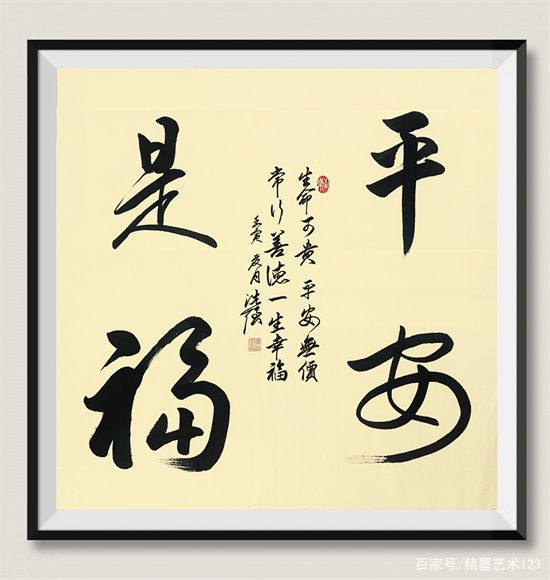 平安
生命可貴 平安無價
常行善德一生幸福
壬寅 月
是福
百家号/楮墨艺术123